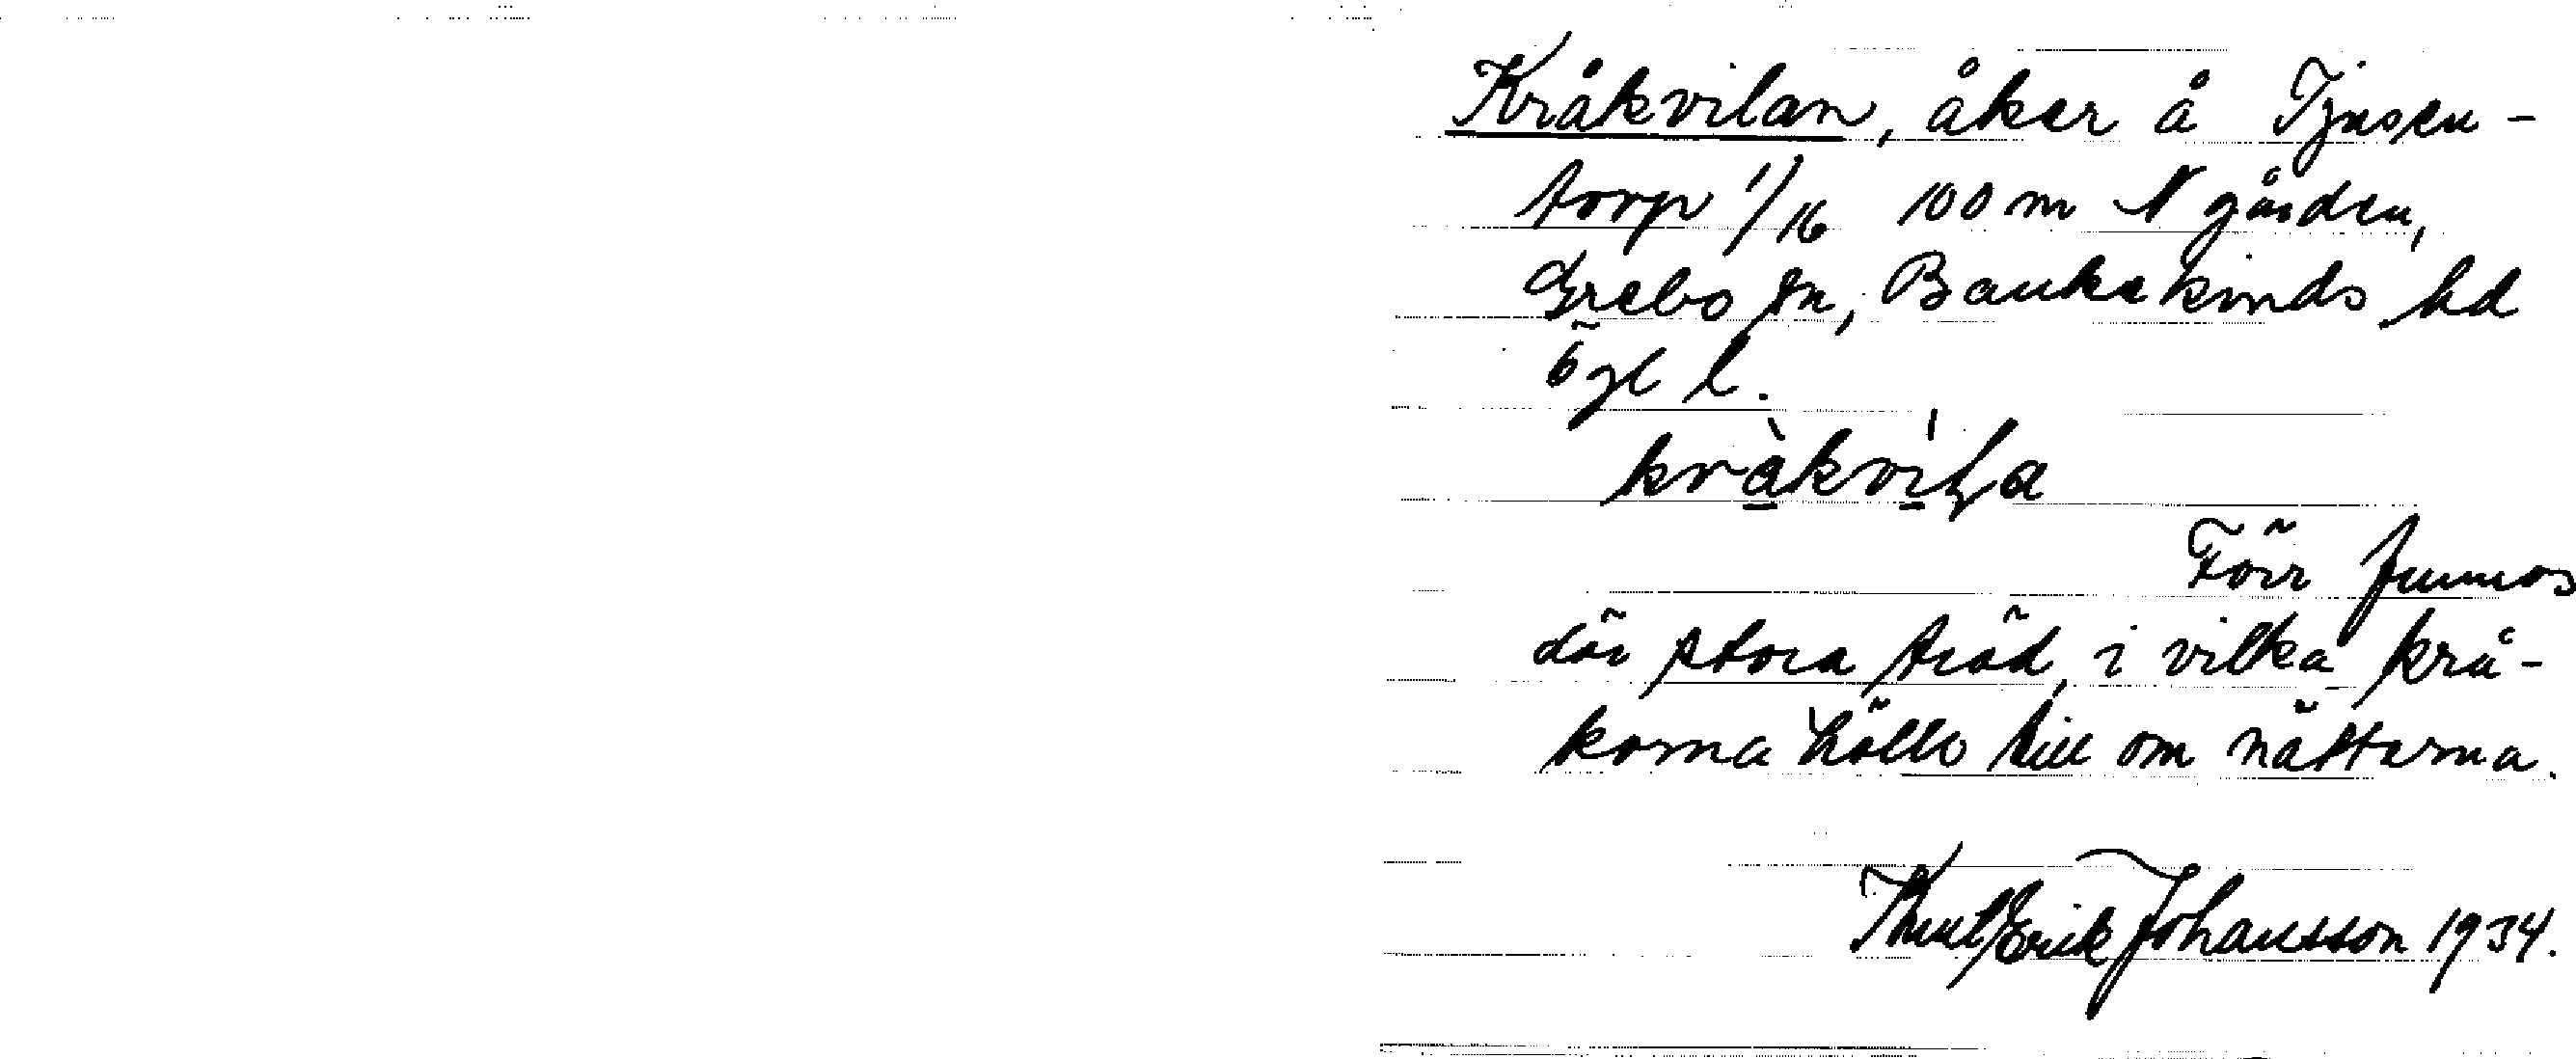 Kråkvilan, åker å Tjusen-
torp 1/16 100 m N gården,
Grebo sn, Bankekinds hd
Ögl l.
kråkvila
Förr funnos
där stora träd, i vilka krå-
korna höllo till om nätterna.
Knut Erik Johansson 1934.